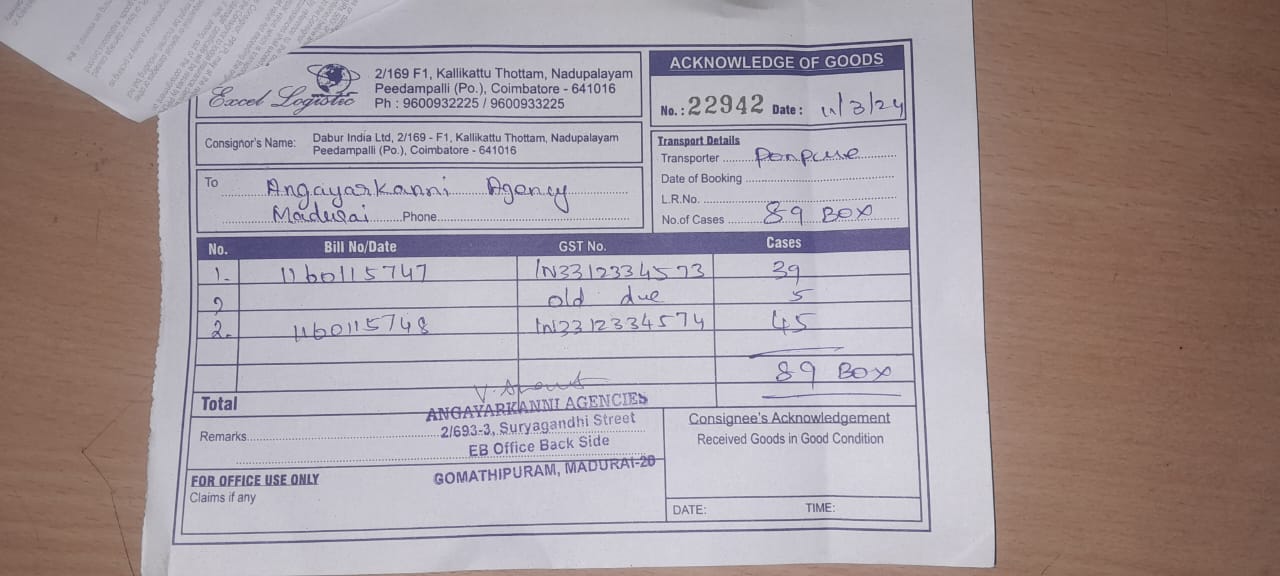 Excel Logistic
2/169 F1, Kallikattu Thottam, Nadupalayam
Peedampalli (Po.), Coimbatore - 641016
Ph : 9600932225 / 9600933225
ACKNOWLEDGE OF GOODS
No. : 22942 Date : 11/3/24
Consignor's Name: Dabur India Ltd, 2/169 - F1, Kallikattu Thottam, Nadupalayam
Peedampalli (Po.), Coimbatore - 641016
To Angayarkanni Agency
Madurai Phone
Transport Details
Transporter
Date of Booking
L.R.No.
No.of Cases 89 BOX
No. Bill No/Date GST No. Cases
1. 1160115747 IN3312334573 39
old due 5
2. 1160115748 IN3312334574 45
89 BOX
Total
ANGAYARKANNI AGENCIES
2/693-3, Suryagandhi Street
EB Office Back Side
GOMATHIPURAM, MADURAI-20
Remarks
FOR OFFICE USE ONLY
Claims if any
Consignee's Acknowledgement
Received Goods in Good Condition
DATE: TIME: